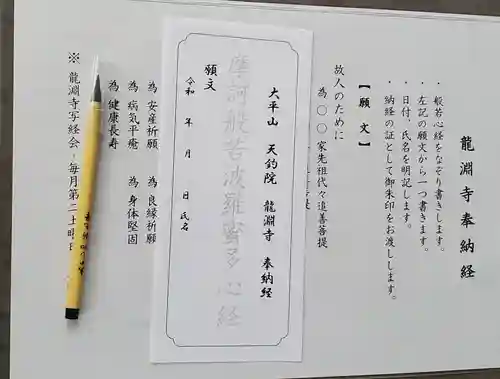 龍淵寺奉納経
・般若心経をなぞり書きします。
・左記の願文から一つ書きます。
・日付、氏名を明記します。
・納経の証として御朱印をお渡しします。
【願文】
故人のために
為 〇〇家先祖代々追善菩提
大平山 天釣院 龍淵寺 奉納経
摩訶般若波羅蜜多心経
願文
令和 年 月 日 氏名
為 安産祈願 為 良縁祈願
為 病気平癒 為 身体堅固
為 健康長寿
※ 龍淵寺写経会 毎月第二土曜日